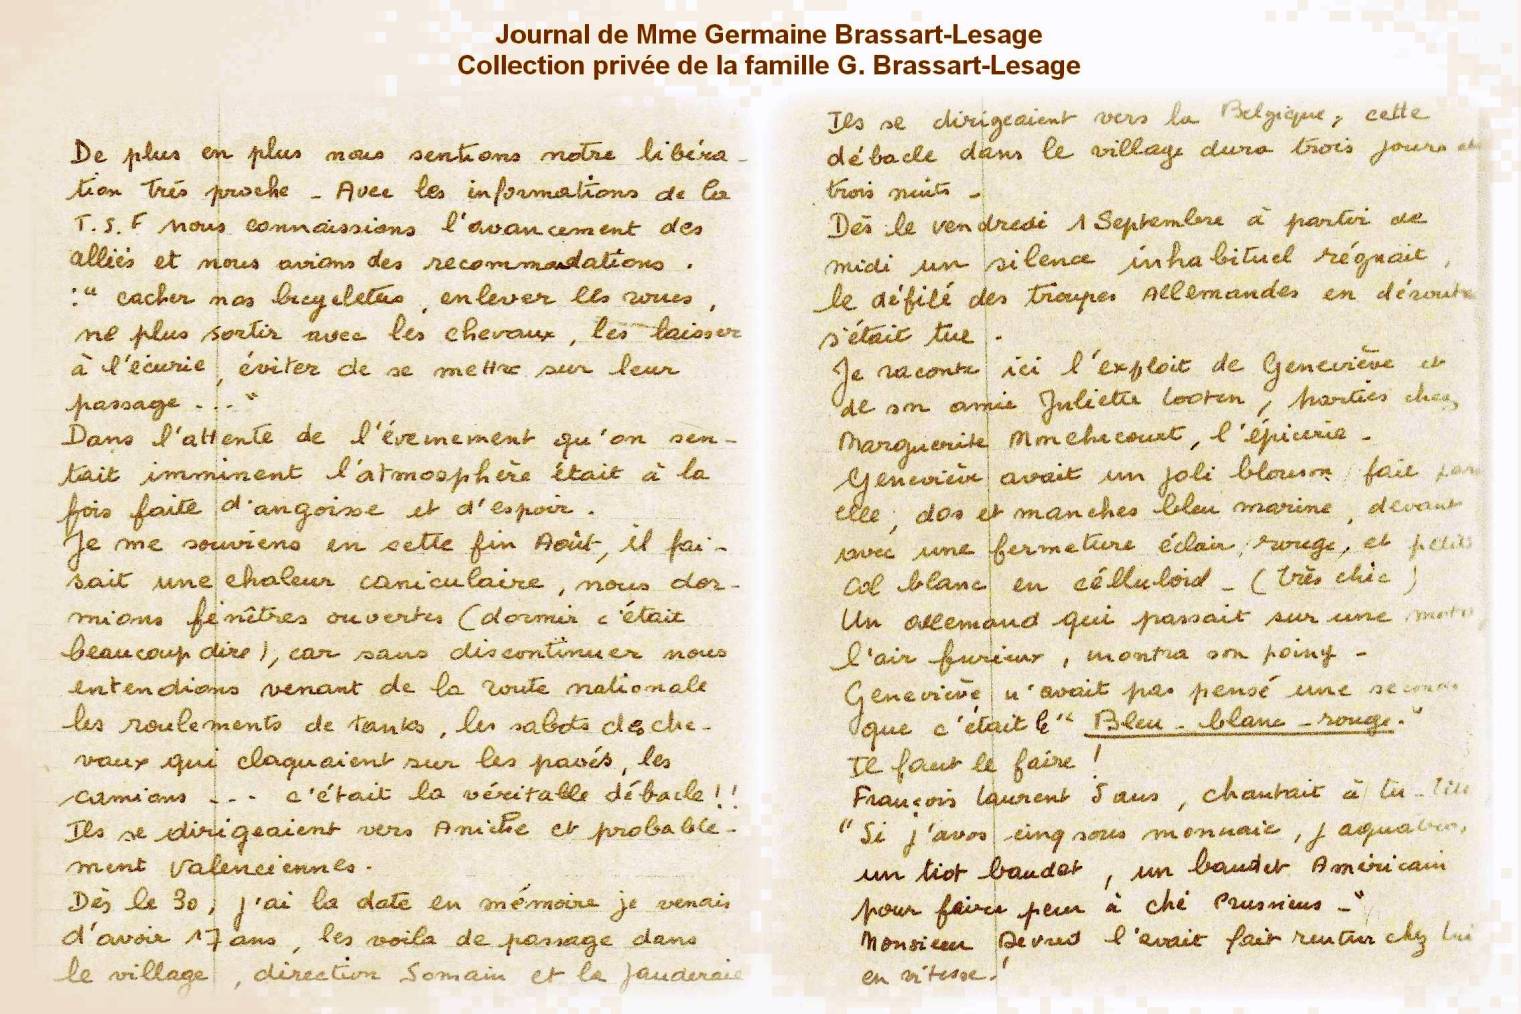 Journal de Mme Germaine Brassart-Lesage
Collection privée de la famille G. Brassart-Lesage
De plus en plus nous sentions notre libéra-
tion très proche - Avec les informations de la
T.S.F nous connaissions l'avancement des
alliés et nous avions des recommandations .
:" cacher nos bicyclettes, enlever les roues,
ne plus sortir avec les chevaux, les laisser
à l'écurie, éviter de se mettre sur leur
passage ... "
Dans l'attente de l'évènement qu'on sen-
tait imminent l'atmosphère était à la
fois faite d'angoisse et d'espoir .
Je me souviens en cette fin Août, il fai-
sait une chaleur caniculaire, nous dor-
mions fenêtres ouvertes (dormir c'était
beaucoup dire), car sans discontinuer nous
entendions venant de la route nationale
les roulements de tanks, les sabots de che-
vaux qui claquaient sur les pavés, les
camions ... c'était la véritable débacle !!
Ils se dirigeaient vers Aniche et probable-
ment Valenciennes.
Dès le 30, j'ai la date en mémoire je venais
d'avoir 17 ans, les voila de passage dans
le village, direction Somain et la
Ils se dirigeaient vers la Belgique, cette
débacle dans le village dura trois jours et
trois nuits -
Dès le vendredi 1 Septembre à partir de
midi un silence inhabituel régnait,
le défilé des troupes Allemandes en déroute
s'était tue .
Je raconte ici l'exploit de Geneviève et
de son amie Juliette Looten, parties chez
Marguerite Monchecourt, l'épicerie -
Geneviève avait un joli blouson fait par
elle, dos et manches bleu marine, devant
avec une fermeture éclair, rouge, et petit
col blanc en célluloïd - (très chic)
Un allemand qui passait sur une moto,
l'air furieux, montra son poing -
Geneviève n'avait pas pensé une seconde
que c'était le " Bleu - blanc - rouge."
Il faut le faire !
François Laurent 5 ans, chantait à tu-tête
"Si j'avos cinq sous monnaie, j
un tiot baudet, un baudet Américain
pour faire peur à ché Prussiens -"
Monsieur Devred l'avait fait rentrer chez lui
en vitesse.!